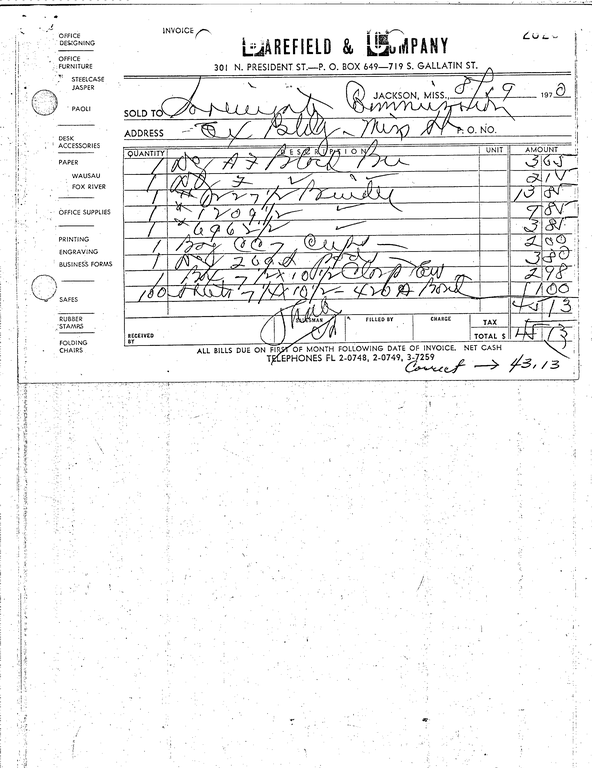 INVOICE
BAREFIELD & COMPANY
301 N. PRESIDENT ST.—P. O. BOX 649—719 S. GALLATIN ST.
JACKSON, MISS., 8/19 1970
SOLD TO Sovereignty Commission
ADDRESS Bldg - Miss P. O. NO.
OFFICE DESIGNING
OFFICE FURNITURE
STEELCASE
JASPER
PAOLI
DESK ACCESSORIES
PAPER
WAUSAU
FOX RIVER
OFFICE SUPPLIES
PRINTING
ENGRAVING
BUSINESS FORMS
SAFES
RUBBER STAMPS
FOLDING CHAIRS
QUANTITY DESCRIPTION UNIT AMOUNT
1 A Z 3 65
1 Z 2 15
1 227 1/2 13 85
1 1209 1/2 9 85
1 6962 1/2 3 85
1 Cups 2 00
1 3 80
1 Box 7 1/2 x 10 1/2 2 98
100 7 1/4 x 10 1/2 - 420 A 1 00
45 13
SALESMAN FILLED BY CHARGE TAX
RECEIVED BY TOTAL $ 45 13
ALL BILLS DUE ON FIRST OF MONTH FOLLOWING DATE OF INVOICE. NET CASH
TELEPHONES FL 2-0748, 2-0749, 3-7259
Correct → 43.13